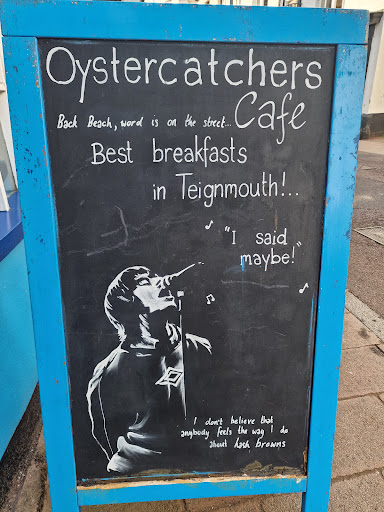 Oystercatchers
Cafe
Back Beach, word is on the street...
Best breakfasts
in Teignmouth!..
"I said
maybe!"
I don't believe that
anybody feels the way I do
about hash browns